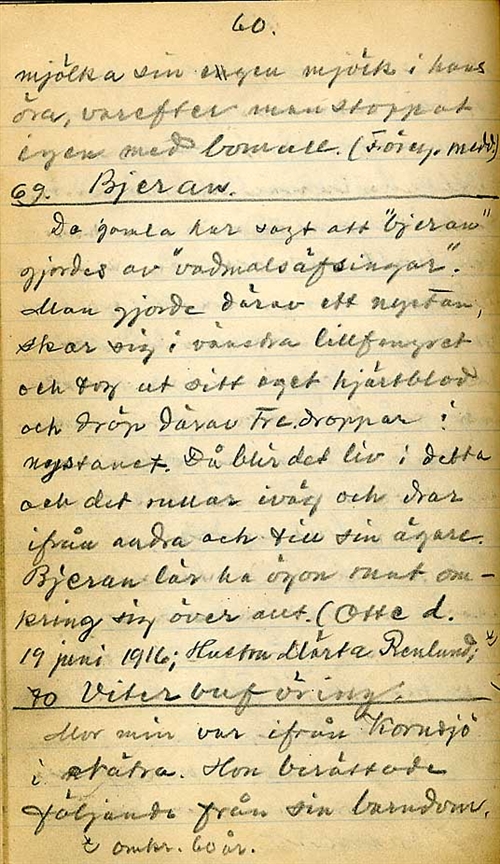 60.
mjölka sin egen mjölk i hans
öra, varefter man stoppat
igen med bomull. (Föreg. medd.)
69. Bjeran.
De gamla har sagt att "bjeran"
gjordes av "vadmalsäfsingar".
Man gjorde därav ett nystan,
skar sig i vänstra lillfingret
och tog ut sitt eget hjärtblod
och dröp därav tre droppar i
nystanet. Då blir det liv i detta
och det rullar iväg och drar
ifrån andra och till sin ägare.
Bjeran lär ha ögon runt om-
kring sig över allt. (Otte d.
19 juni 1916; Hustru Märta Renlund; x)
70 Vitterbuföring.
Mor min var ifrån Kornsjö
i Nätra. Hon berättade
följande från sin barndom.
x omkr. 60 år.